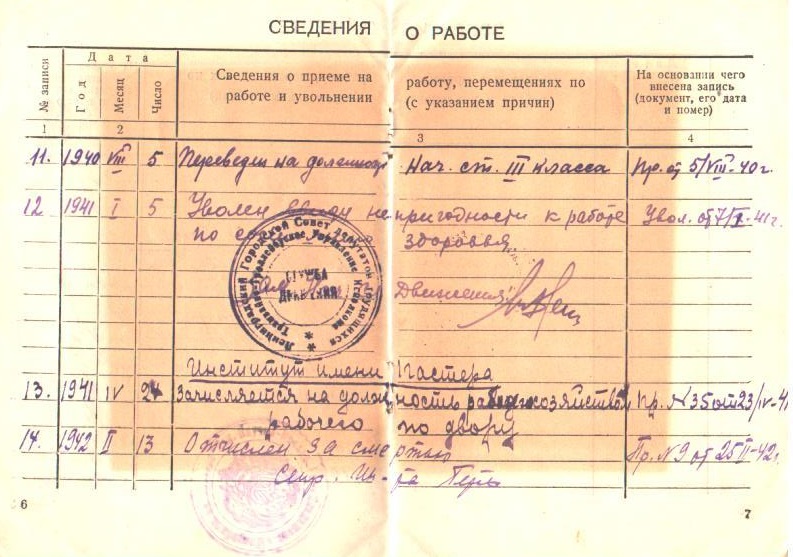 СВЕДЕНИЯ О РАБОТЕ
№ записи
Дата
Год
Месяц
Число
Сведения о приеме на работу, перемещениях по
работе и увольнении (с указанием причин)
На основании чего
внесена запись
(документ, его дата
и номер)
1 2 3 4
11. 1940 VIII 5 Переведен на должность Нач. ст. III класса Пр. от 5/VIII-40 г.
12 1941 I 5 Уволен ввиду непригодности к работе Увол. от 7/I-41 г.
по здоровья
Движения
Ленинградский Городской Совет депутатов трудящихся
Трамвайно Управление
СЛУЖБА
ДВИЖЕНИЯ
Институт имени Пастера
13. 1941 IV 24 Зачисляется на должность Пр. № 35 от 23/IV-41
рабочего по двору
14. 1942 II 13 Отчислен за смертью Пр. № 9 от 25 II-42 г.
Секр. Ин-та
6
7